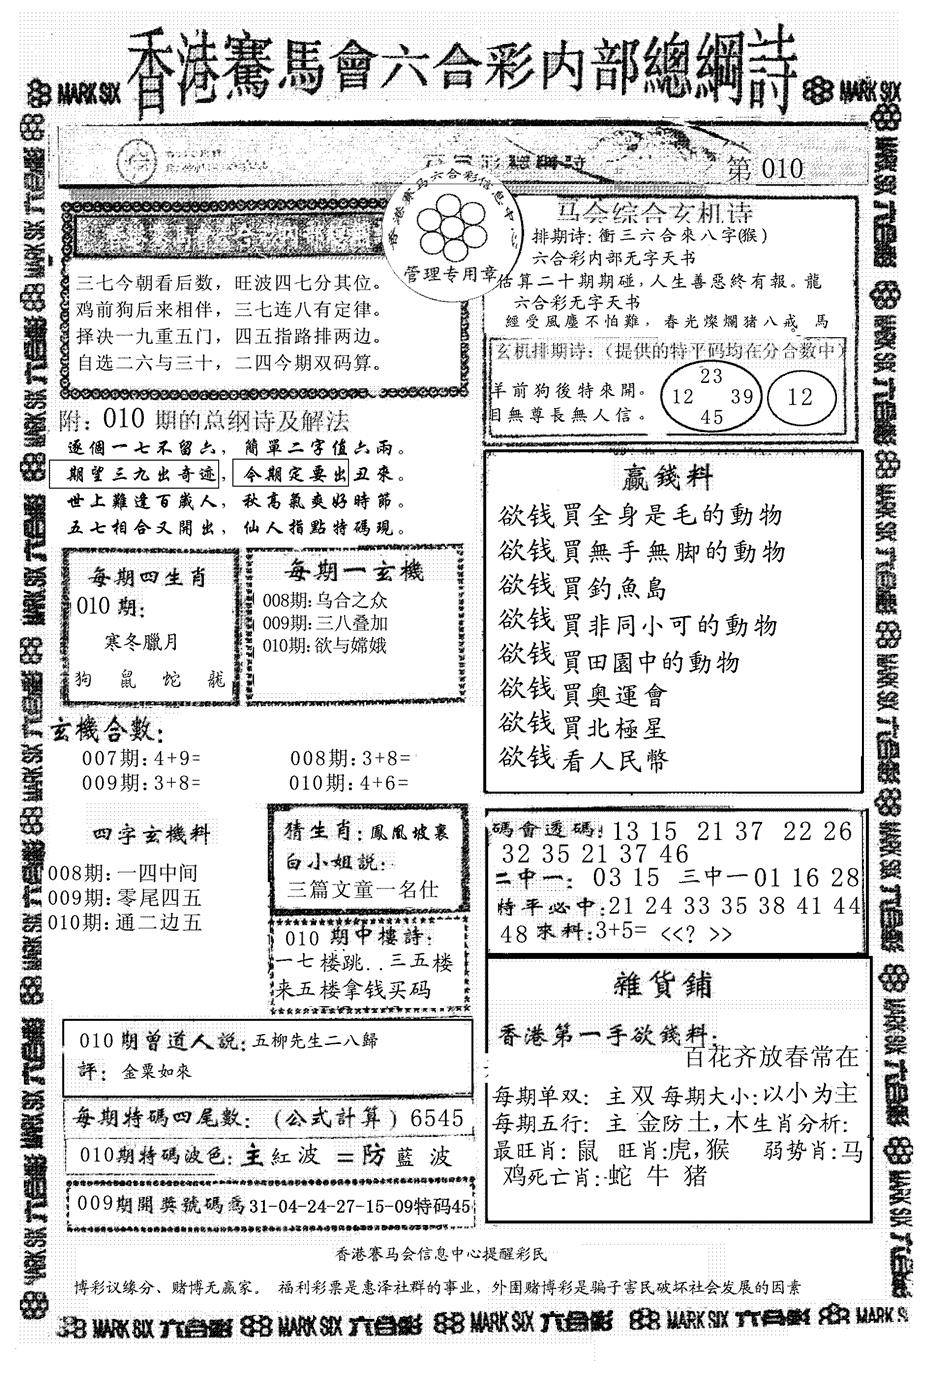 香港賽馬會六合彩内部總綱詩
MARK SIX
MARK SIX
第 010
管理专用章
三七今朝看后数，旺波四七分其位。
鸡前狗后来相伴，三七连八有定律。
择决一九重五门，四五指路排两边。
自选二六与三十，二四今期双码算。
马会综合玄机诗
排期诗: 衝三六合來八字(猴)
六合彩内部无字天书
估算二十期期碰, 人生善惡終有報。龍
六合彩无字天书
經受風塵不怕難，春光燦爛猪八戒。馬
玄机排期诗:（提供的特平码均在分合数中）
羊前狗後特來開。
目無尊長無人信。
23
12 39
45
12
附: 010 期的总纲诗及解法
逐個一七不留六，簡單二字值六兩。
期望三九出奇迹，今期定要出丑來。
世上難逢百歲人，秋高氣爽好時節。
五七相合又開出，仙人指點特碼現。
每期四生肖
010 期:
寒冬臘月
狗 鼠 蛇 龍
每期一玄機
008期: 乌合之众
009期: 三八叠加
010期: 欲与嫦娥
赢錢料
欲钱買全身是毛的動物
欲钱買無手無脚的動物
欲钱買釣魚島
欲钱買非同小可的動物
欲钱買田園中的動物
欲钱買奥運會
欲钱買北極星
欲钱看人民幣
玄機合數:
007期: 4+9= 008期: 3+8=
009期: 3+8= 010期: 4+6=
四字玄機料
008期: 一四中间
009期: 零尾四五
010期: 通二边五
猜生肖: 鳳凰坡裏
白小姐説:
三篇文童一名仕
010 期中樓詩:
一七楼跳..三五楼
来五楼拿钱买码
碼會透碼: 13 15 21 37 22 26
32 35 21 37 46
二中一: 03 15 三中一 01 16 28
特平必中: 21 24 33 35 38 41 44
48 來料: 3+5= <<? >>
雜貨鋪
香港第一手欲錢料:
百花齐放春常在
每期单双: 主双 每期大小: 以小为主
每期五行: 主 金防土, 木 生肖分析:
最旺肖: 鼠 旺肖:虎, 猴 弱势肖: 马
鸡死亡肖: 蛇 牛 猪
010期曾道人説: 五柳先生二八歸
評: 金粟如來
每期特碼四尾數: (公式計算) 6545
010期特碼波色: 主 紅波 = 防 藍 波
009期開獎號碼爲 31-04-24-27-15-09特码45
香港赛马会信息中心提醒彩民
博彩议缘分、赌博无赢家。 福利彩票是惠泽社群的事业，外围赌博彩是骗子害民破坏社会发展的因素
MARK SIX 六合彩 MARK SIX 六合彩 MARK SIX 六合彩 MARK SIX 六合彩 MARK SIX